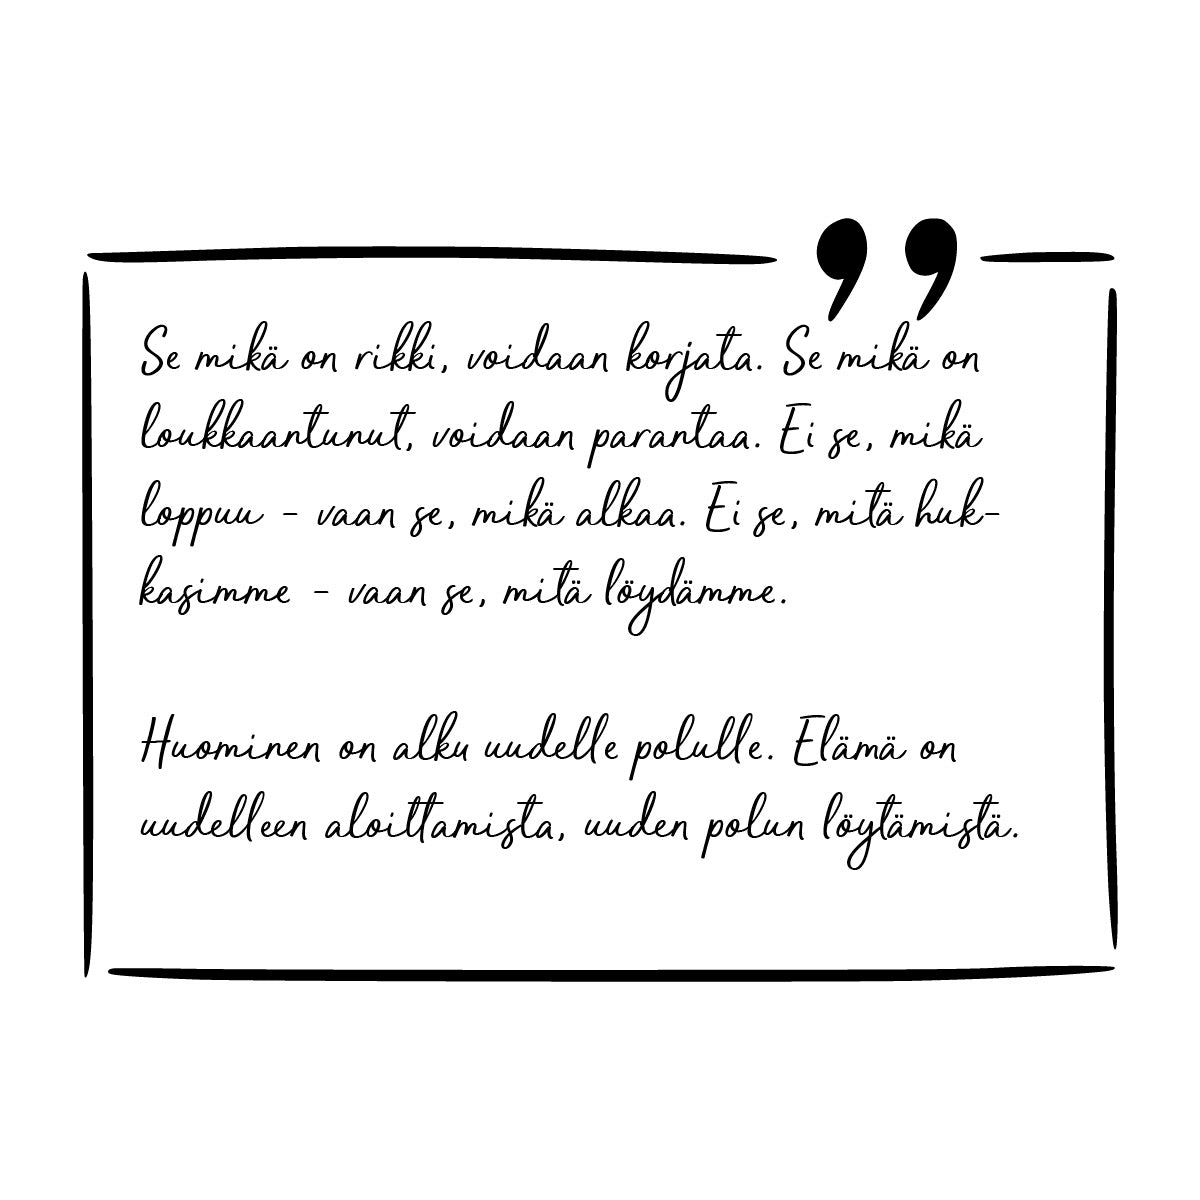 ”
Se mikä on rikki, voidaan korjata. Se mikä on
loukkaantunut, voidaan parantaa. Ei se, mikä
loppuu - vaan se, mikä alkaa. Ei se, mitä huk-
kasimme - vaan se, mitä löydämme.
Huominen on alku uudelle polulle. Elämä on
uudelleen aloittamista, uuden polun löytämistä.